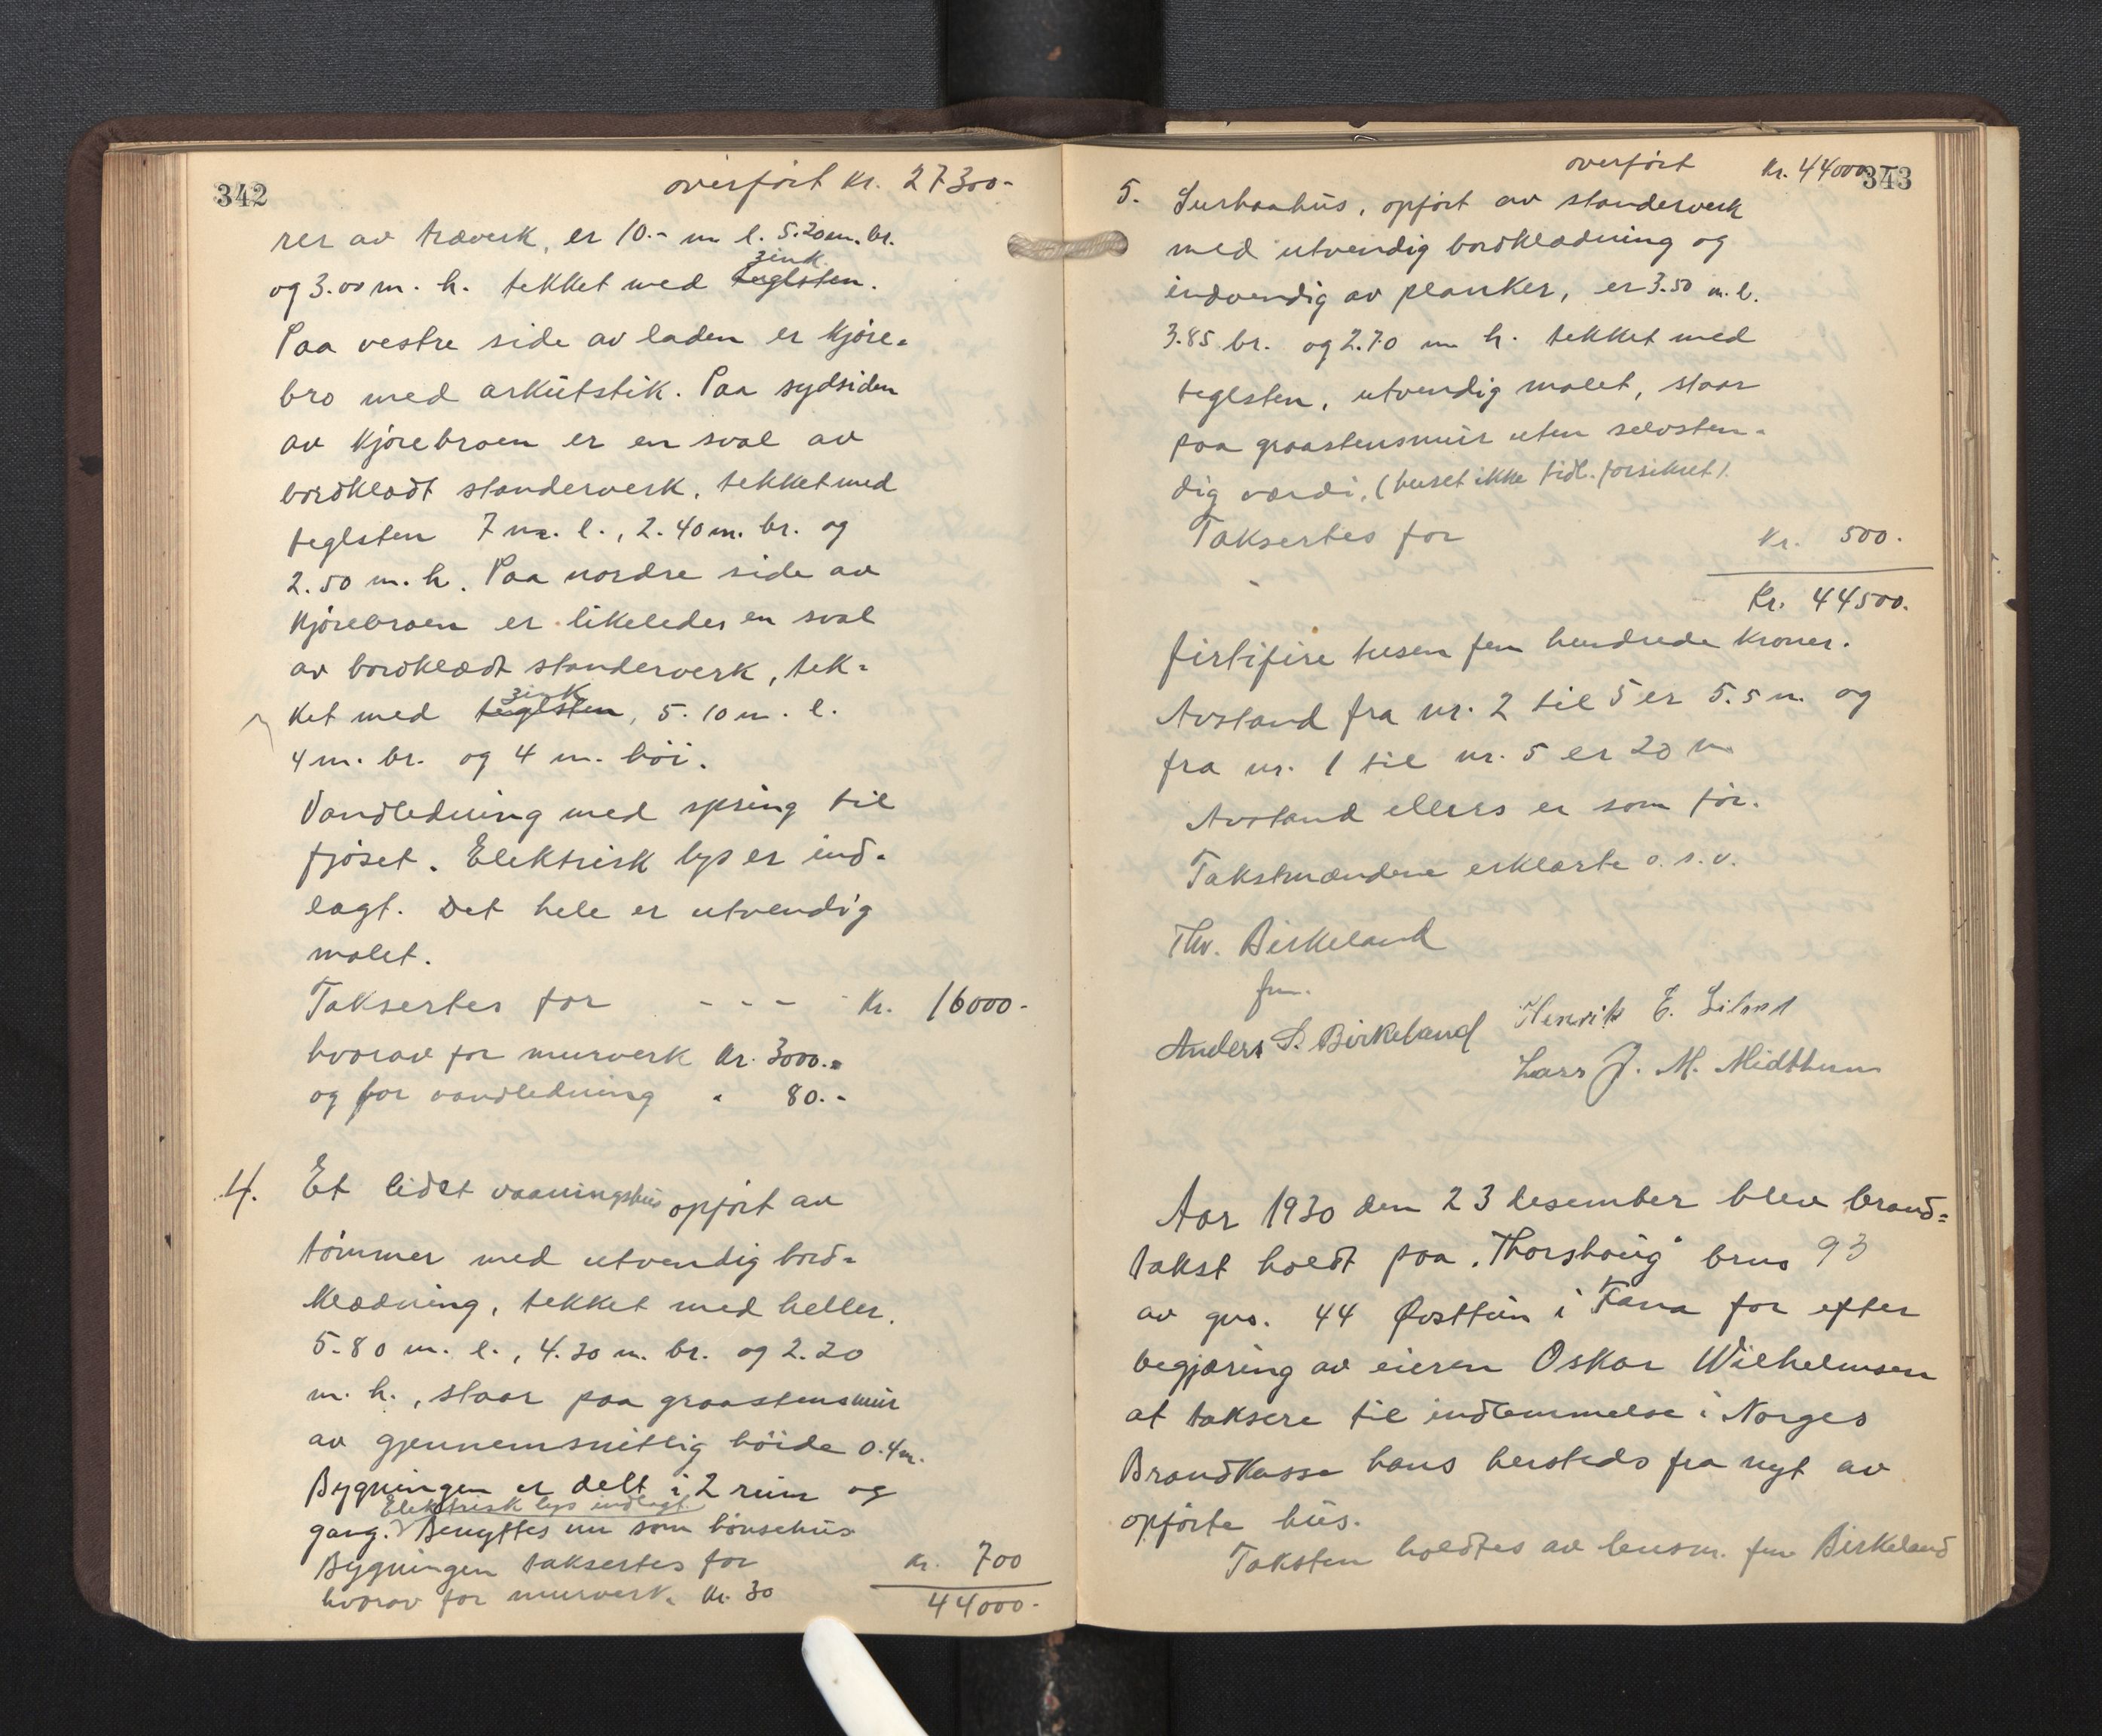 342
overført Kr. 27300-
rer av træverk, er 10.- m l. 5.20 m. br.
zink
og 3.00 m. h. tekket med teglsten.
Paa vestre side av laden er kjøre-
bro med arkutstik. Paa sydsiden
av kjørebroen er en sval av
bordklædt standerverk, tekket med
teglsten 7 m. l., 2.40 m. br. og
2.50 m. h. Paa nordre side av
kjørebroen er likeledes en sval
av bordklædt standerverk, tek-
zink
ket med teglsten, 5.10 m. l.
4 m. br. og 4 m. høi.
Vandledning med spring til
fjøset. Elektrisk lys er ind-
lagt. Det hele er utvendig
malet.
Taksertes for - - - - Kr. 16000-
hvorav for murverk Kr. 3000.-
og for vandledning " 80.-
4. Et lidet vaaningshus opført av
tømmer med utvendig bord-
klædning, tekket med heller.
5.80 m. l., 4.30 m. br. og 2.20
m. h., staar paa graastensmur
av gjennemsnitlig høide 0.4 m.
Bygningen er delt i 2 rum og
Elektrisk lys indlagt.
gang. Benyttes nu som hønsehus
Bygningen taksertes for Kr. 700
hvorav for murverk. Kr. 30
44000-
343
overført Kr. 44000
5. Surhaahus, opført av standerverk
med utvendig bordklædning og
indvendig av planker, er 3.50 m. l.
3.85 br. og 2.70 m h. tekket med
teglsten, utvendig malet, staar
paa graastensmur uten selvsten-
dig værdi, (huset ikke tidl. forsikret).
Taksertes for Kr. 500.
Kr. 44500.
firtifire tusen fem hundrede kroner.
Avstand fra nr. 2 til 5 er 5.5 m. og
fra nr. 1 til nr. 5 er 20 m
Avstand ellers er som før.
Takstmændene erklærte o. s. v.
Thv. Birkeland
fm.
Anders S. Birkeland
Henrik E.
Lars J. M. Midtthun
Aar 1930 den 23 desember blev brand-
takst holdt paa "Thorshaug" brns 93
av gns. 44 Østtun i Fana for efter
begjæring av eieren Oskar Wilhelmsen
at taksere til indlemmelse i Norges
Brandkasse hans hersteds fra nyt av
opførte hus.
Taksten holdtes av lensm. fm Birkeland